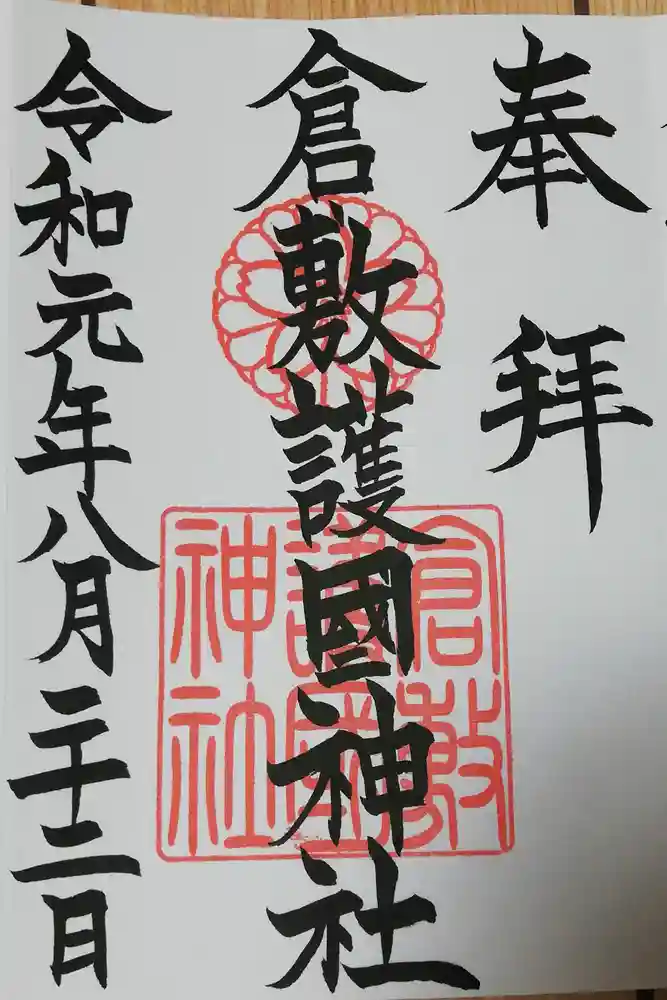 奉拝
倉敷護國神社
倉敷
護國
神社
令和元年八月二十二日